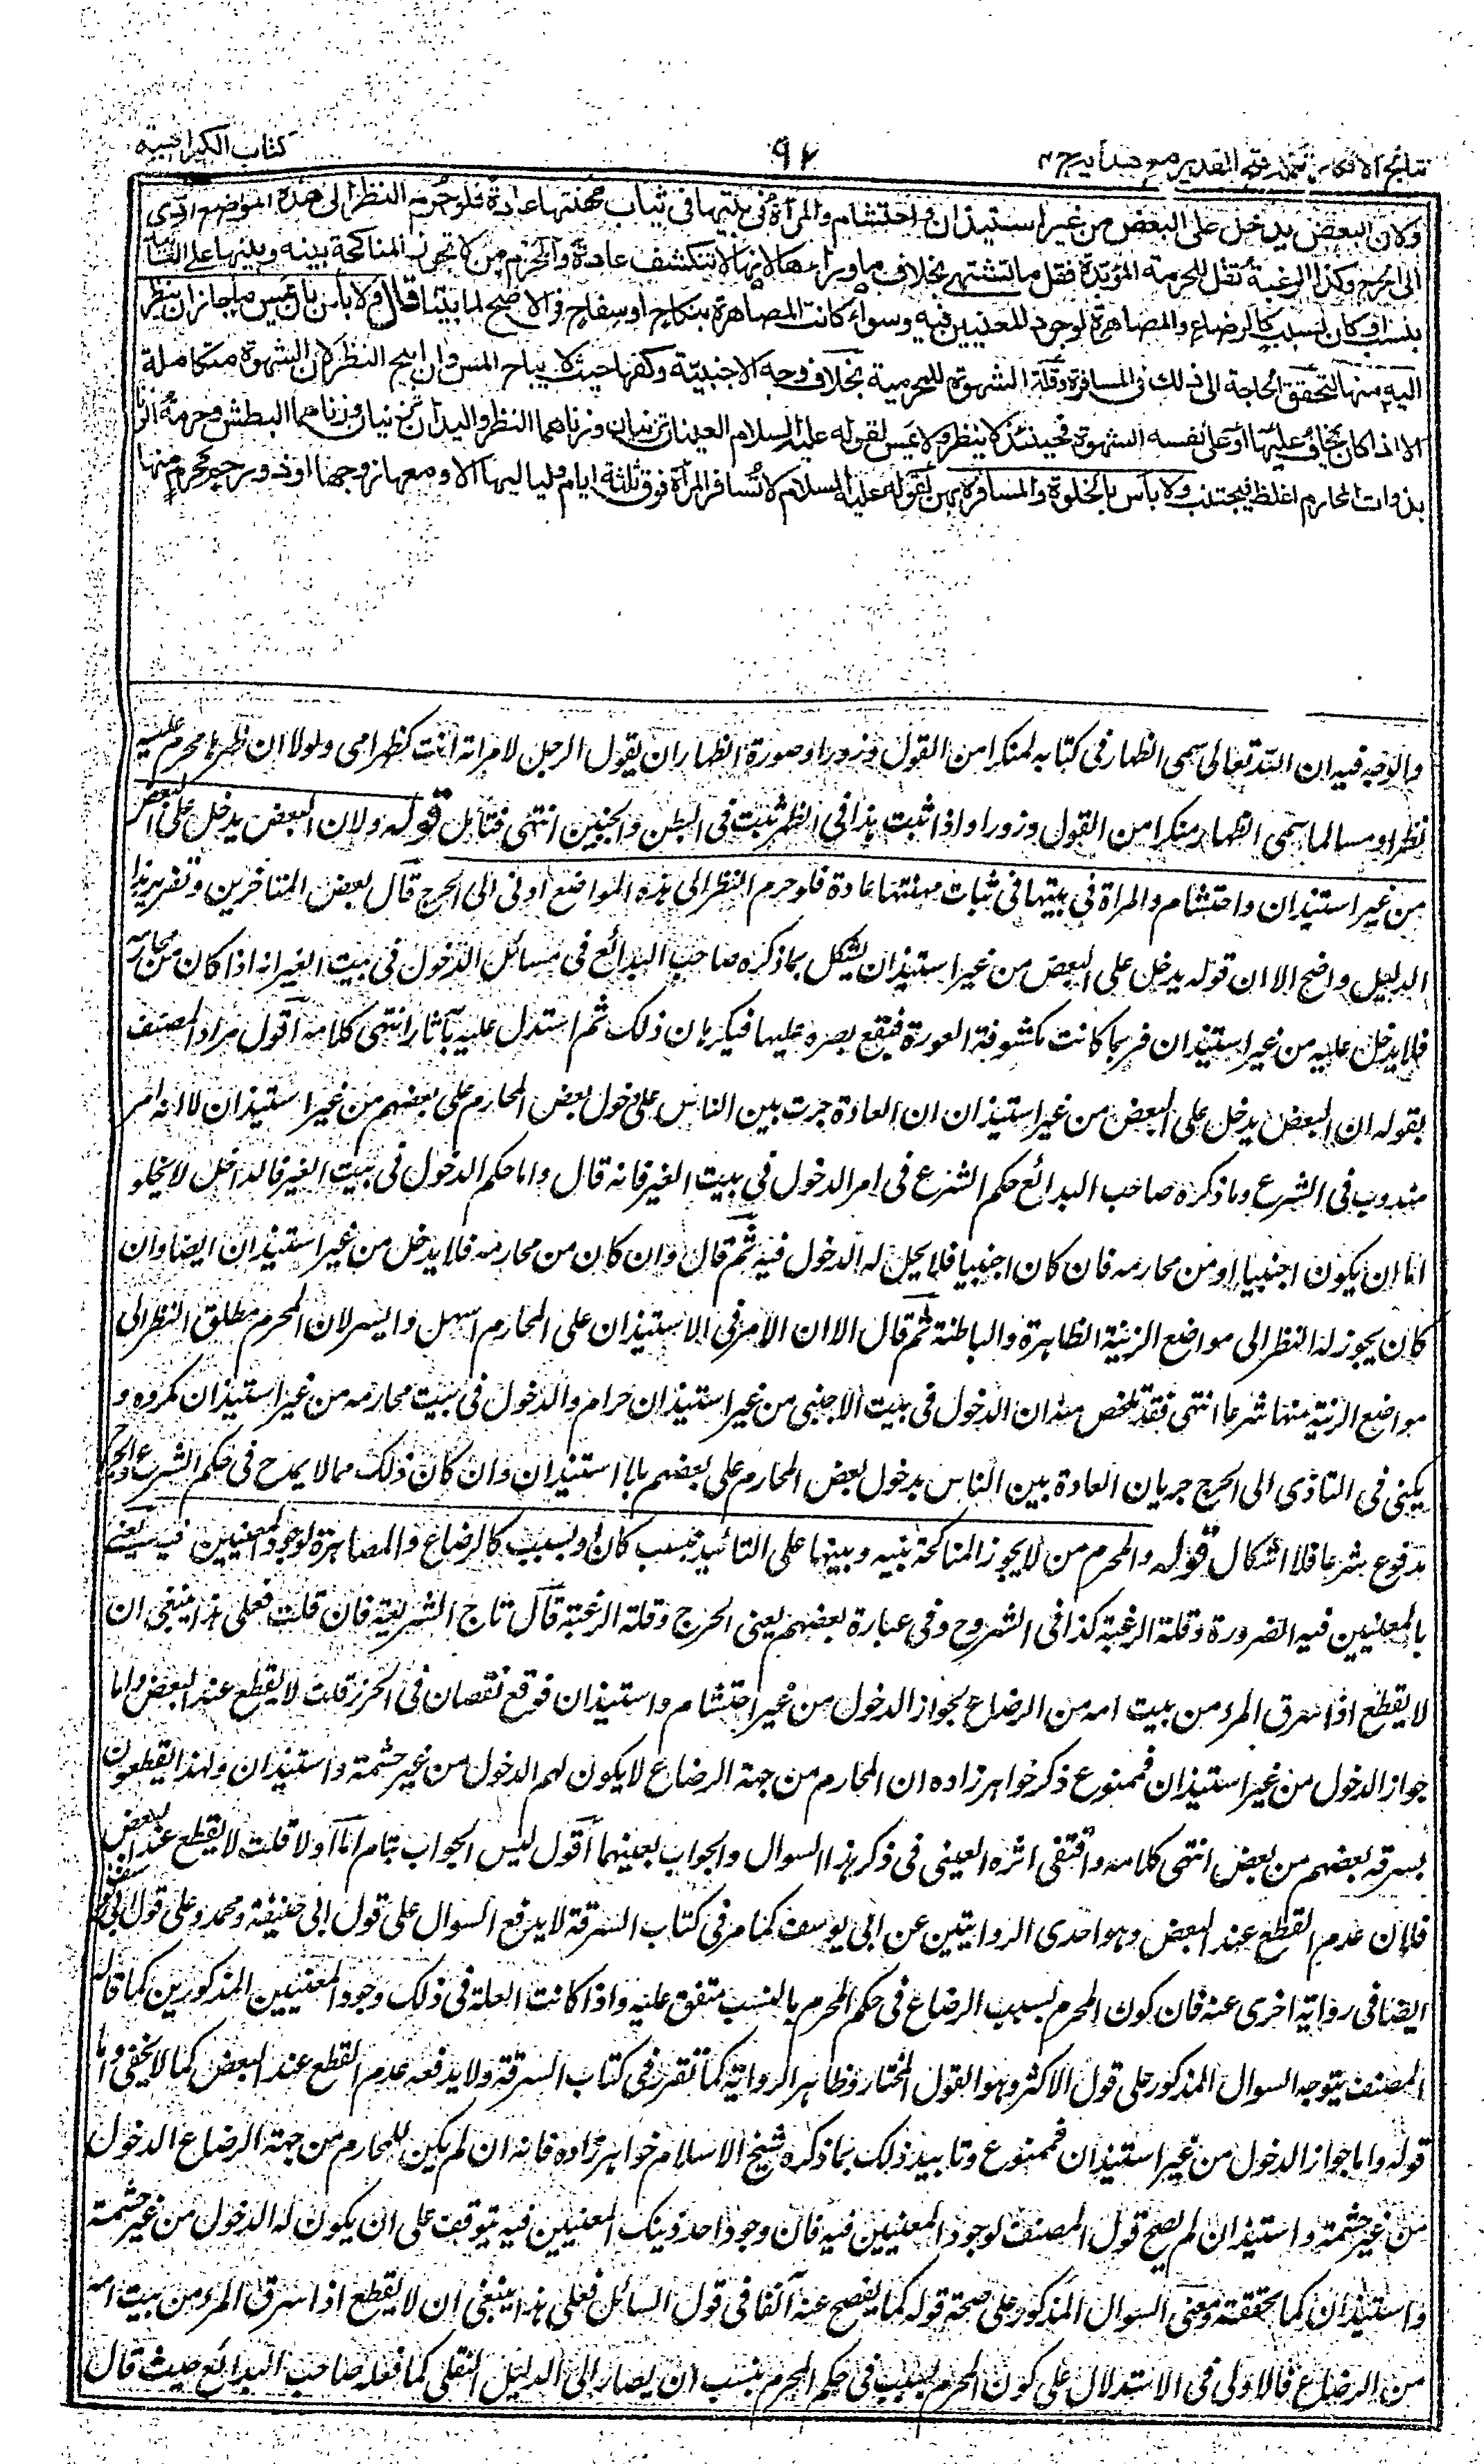 نتائج الافكار تكملة فتح القدير مع هداية ج ٤
٩٢
كتاب الكراهية
ولان البعض يدخل على البعض من غير استيذان واحتشام والمرأة في بيتها في ثياب مهنتها عادة فلو حرم النظر الى هذه المواضع ادى
الى الحرج وكذا الرغبة تقل للحرمة المؤبدة فقل ما تشتهى بخلاف ما وراءها لانها لا تنكشف عادة والمحرم من لا تجوز المناكحة بينه وبينها على التابيد
بنسب او كان بسبب كالرضاع والمصاهرة لوجود المعنيين فيه وسواء كانت المصاهرة بنكاح او سفاح في الاصح لما بينا قال ولا بأس بان يمس ما جاز ان ينظر
اليه منها لتحقق الحاجة الى ذلك في المسافرة وقلة الشهوة للمحرمية بخلاف وجه الاجنبية وكفها حيث لا يباح المس وان ابيح النظر لان الشهوة متكاملة
الا اذا كان يخاف عليها او على نفسه الشهوة فحينئذ لا ينظر ولا يمس لقوله عليه السلام العينان تزنيان وزناهما النظر واليدان تزنيان وزناهما البطش وحرمة الزنا
بذوات المحارم اغلظ فيجتنب ولا بأس بالخلوة والمسافرة بهن لقوله عليه السلام لا تسافر المرأة فوق ثلثة ايام ولياليها الا ومعها زوجها او ذو رحم محرم منها
والوجه فيه ان الله تعالى سمى الظهار في كتابه منكرا من القول وزورا وصورة الظهار ان يقول الرجل لامراته انت كظهر امى ولولا ان ظهرها محرم عليه
نظرا ومسا لما سمى الظهار منكرا من القول وزورا واذا ثبت هذا في الظهر ثبت في البطن والجنبين انتهى فتأمل قوله ولان البعض يدخل على البعض
من غير استيذان واحتشام والمراة في بيتها في ثبات مهنتها عادة فلو حرم النظر الى هذه المواضع ادنى الى الحرج قال بعض المتاخرين وتقرير هذا
الدليل واضح الا ان قوله يدخل على البعض من غير استيذان يشكل بما ذكره صاحب البدائع في مسائل الدخول في بيت الغير انه اذا كان من محارمه
فلا يدخل عليه من غير استيذان فربما كانت مكشوفة العورة فيقع بصره عليها فيكرهان ذلك ثم استدل عليه بآثار انتهى كلامه اقول مراد المصنف
بقوله ان البعض يدخل على البعض من غير استيذان ان العادة جرت بين الناس على دخول بعض المحارم على بعضهم من غير استيذان لا انه امر
مندوب في الشرع وما ذكره صاحب البدائع حكم الشرع في امر الدخول في بيت الغير فانه قال واما حكم الدخول في بيت الغير فالداخل لا يخلو
اما ان يكون اجنبيا او من محارمه فان كان اجنبيا فلا يحل له الدخول فيه ثم قال وان كان من محارمه فلا يدخل من غير استيذان ايضا وان
كان يجوز له النظر الى مواضع الزينة الظاهرة والباطنة ثم قال الا ان الامر في الاستيذان على المحارم اسهل وايسر لان المحرم مطلق النظر الى
مواضع الزينة منها شرعا انتهى فقد تلخص منه ان الدخول في بيت الاجنبى من غير استيذان حرام والدخول في بيت محارمه من غير استيذان مكروه و
يكفى في التاذى الى الحرج جريان العادة بين الناس بدخول بعض المحارم على بعضهم بلا استيذان وان كان ذلك مما لا يمدح في حكم الشرع والحرج
مدفوع شرعا فلا اشكال قوله والمحرم من لا يجوز المناكحة بينه وبينها على التائيد بنسب كان او بسبب كالرضاع والمصاهرة لوجود المعنيين فيه يعنى
بالمعنيين فيه الضرورة وقلة الرغبة كذا في الشروح وفى عبارة بعضهم يعنى الحرج وقلة الرغبة قال تاج الشريعة فان قلت فعلى هذا ينبغى ان
لا يقطع اذا سرق المرء من بيت امه من الرضاع لجواز الدخول من غير احتشام واستيذان فوقع نقصان في الحرز قلت لا يقطع عند البعض واما
جواز الدخول من غير استيذان فممنوع ذكر خواهر زاده ان المحارم من جهة الرضاع لا يكون لهم الدخول من غير حشمة واستيذان ولهذا يقطعون
بسرقة بعضهم من بعض انتهى كلامه واقتفى اثره العينى في ذكر هذا السوال والجواب بعينهما اقول ليس الجواب بتام اما اولا قلت لا يقطع عند البعض
فلان عدم القطع عند البعض وهو احدى الروايتين عن ابى يوسف كما مر في كتاب السرقة لا يدفع السوال على قول ابى حنيفة ومحمد وعلى قول ابى يوسف
ايضا في رواية اخرى عنه فان كون المحرم بسبب الرضاع في حكم المحرم بالنسب متفق عليه واذا كانت العلة في ذلك وجود المعنيين المذكورين كما قاله
المصنف يتوجه السوال المذكور على قول الاكثر وهو القول المختار وظاهر الرواية كما تقرر في كتاب السرقة ولا يدفعه عدم القطع عند البعض كما لا يخفى واما
قوله واما جواز الدخول من غير استيذان فممنوع وتاييد ذلك بما ذكره شيخ الاسلام خواهر زاده فانه ان لم يكن للمحارم من جهة الرضاع الدخول
من غير حشمة واستيذان لم يصح قول المصنف لوجود المعنيين فيه فان وجود احد ذينك المعنيين فيه يتوقف على ان يكون له الدخول من غير حشمة
واستيذان كما تحققته ومعنى السوال المذكور على صحة قوله كما يفصح عنه آنفا في قول السائل فعلى هذا ينبغى ان لا يقطع اذا سرق المرء من بيت امه
من الرضاع فالاولى في الاستدلال على كون المحرم بسبب في حكم المحرم بنسب ان يصار الى الدليل النقلى كما فعله صاحب البدائع حيث قال